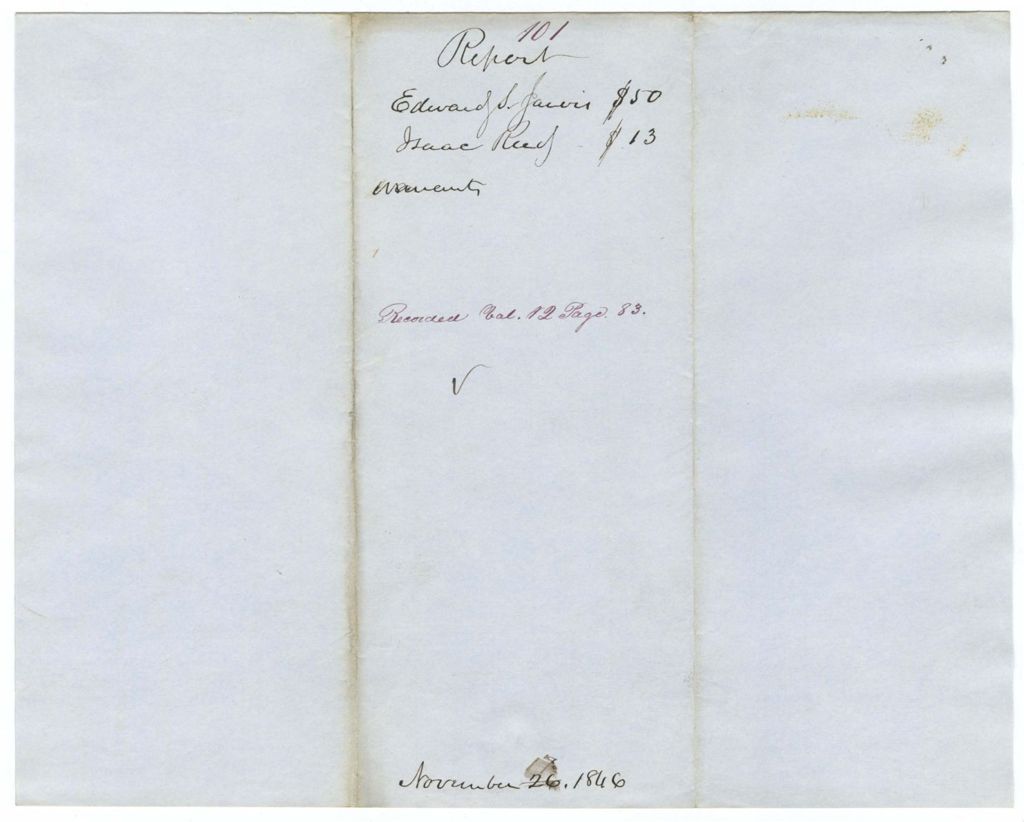 101
Report
Edward S. Jarvis $50
Isaac Reed $13
warrants
Recorded Vol. 12 Page. 83.
November 26. 1846